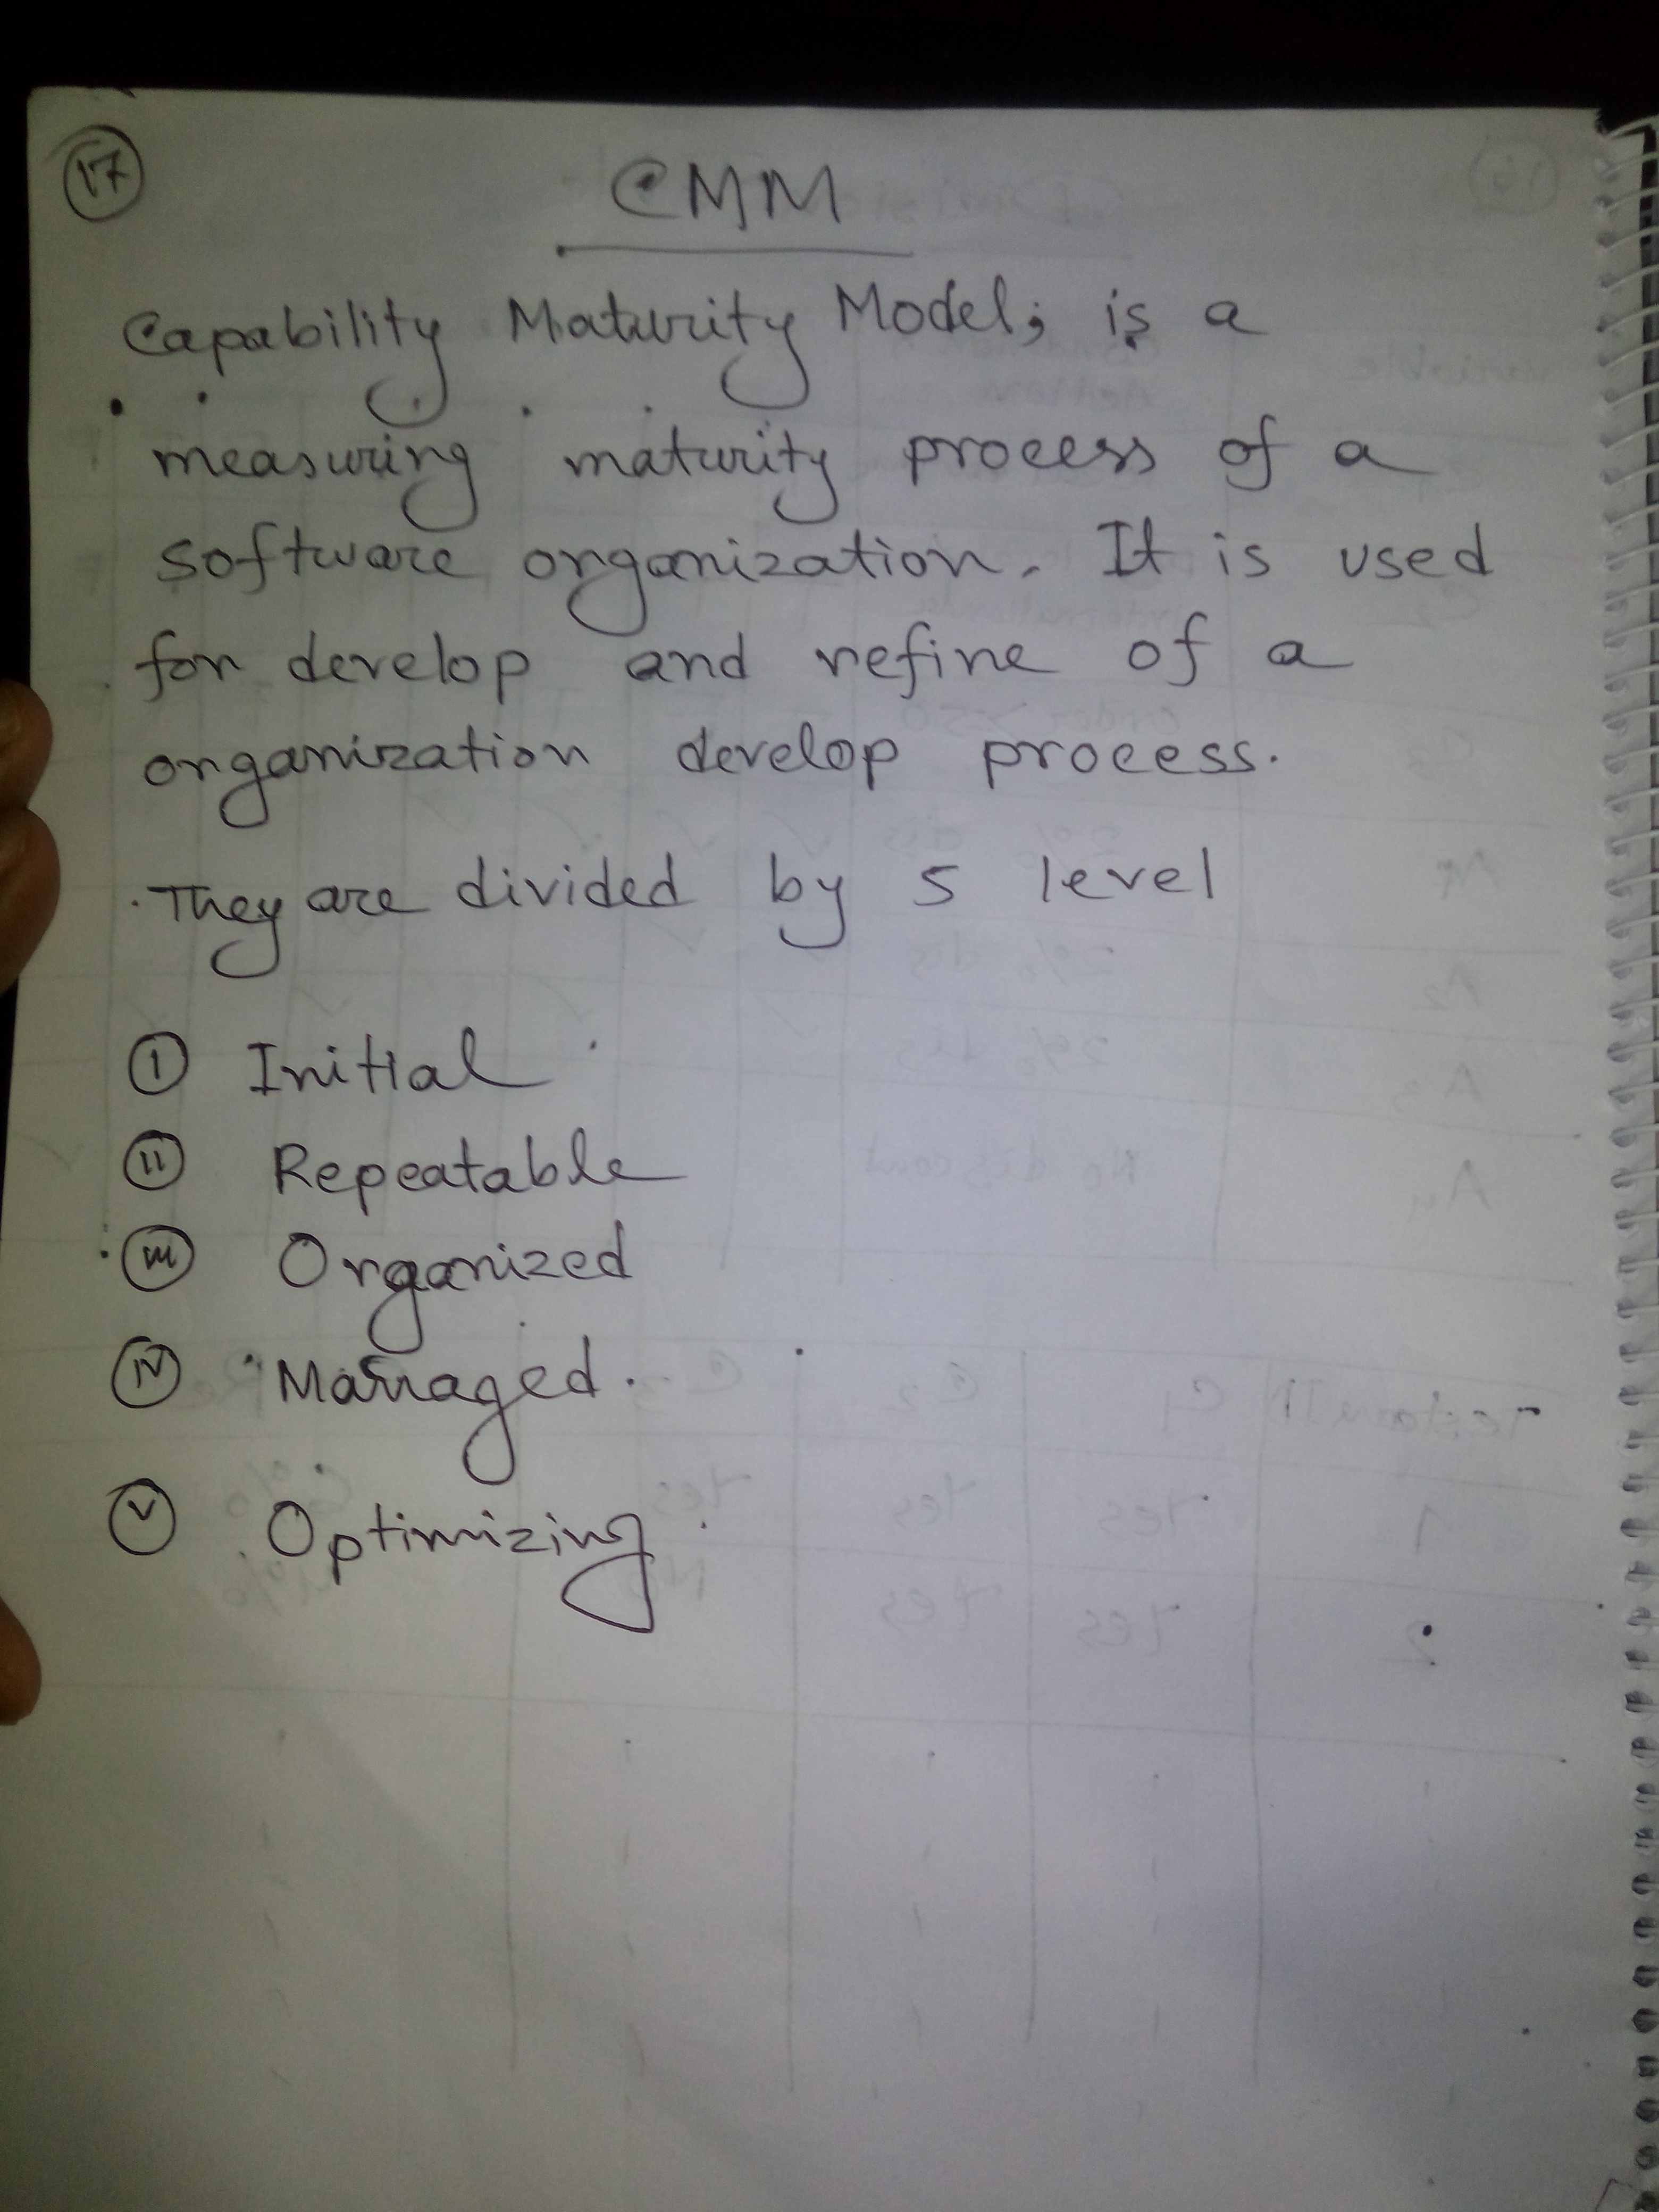 17
CMM
Capability Maturity Model; is a
measuring maturity process of a
software organization. It is used
for develop and refine of a
organization develop process.
They are divided by 5 level
I Initial
II Repeatable
III Organized
IV Managed.
V Optimizing